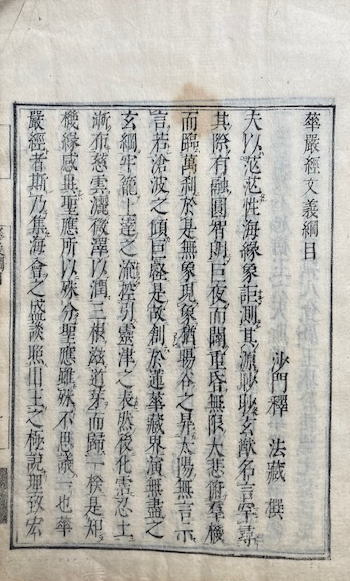 華嚴經文義綱目
沙門釋 法藏 撰
夫以茫茫性海緣象詎測其源眇眇玄猷名言罕尋
其際有融圓智朗巨夜而闢重昏無限大悲俯羣機
而臨萬剎於是無象現象猶暘谷之昇太陽無言示
言若滄波之傾巨壑是故創於蓮華藏界演無盡之
玄綱牢籠上達之流控引靈津之表然後化霑忍土
漸布慈雲灑微澤以潤三根滋道芽而歸一揆是知
機緣感異聖應所以殊分聖應雖殊不思議一也華
嚴經者斯乃集海會之盛談照山王之極說理致宏